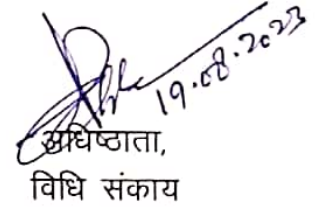 19.08.2023
अधिष्ठाता,
विधि संकाय